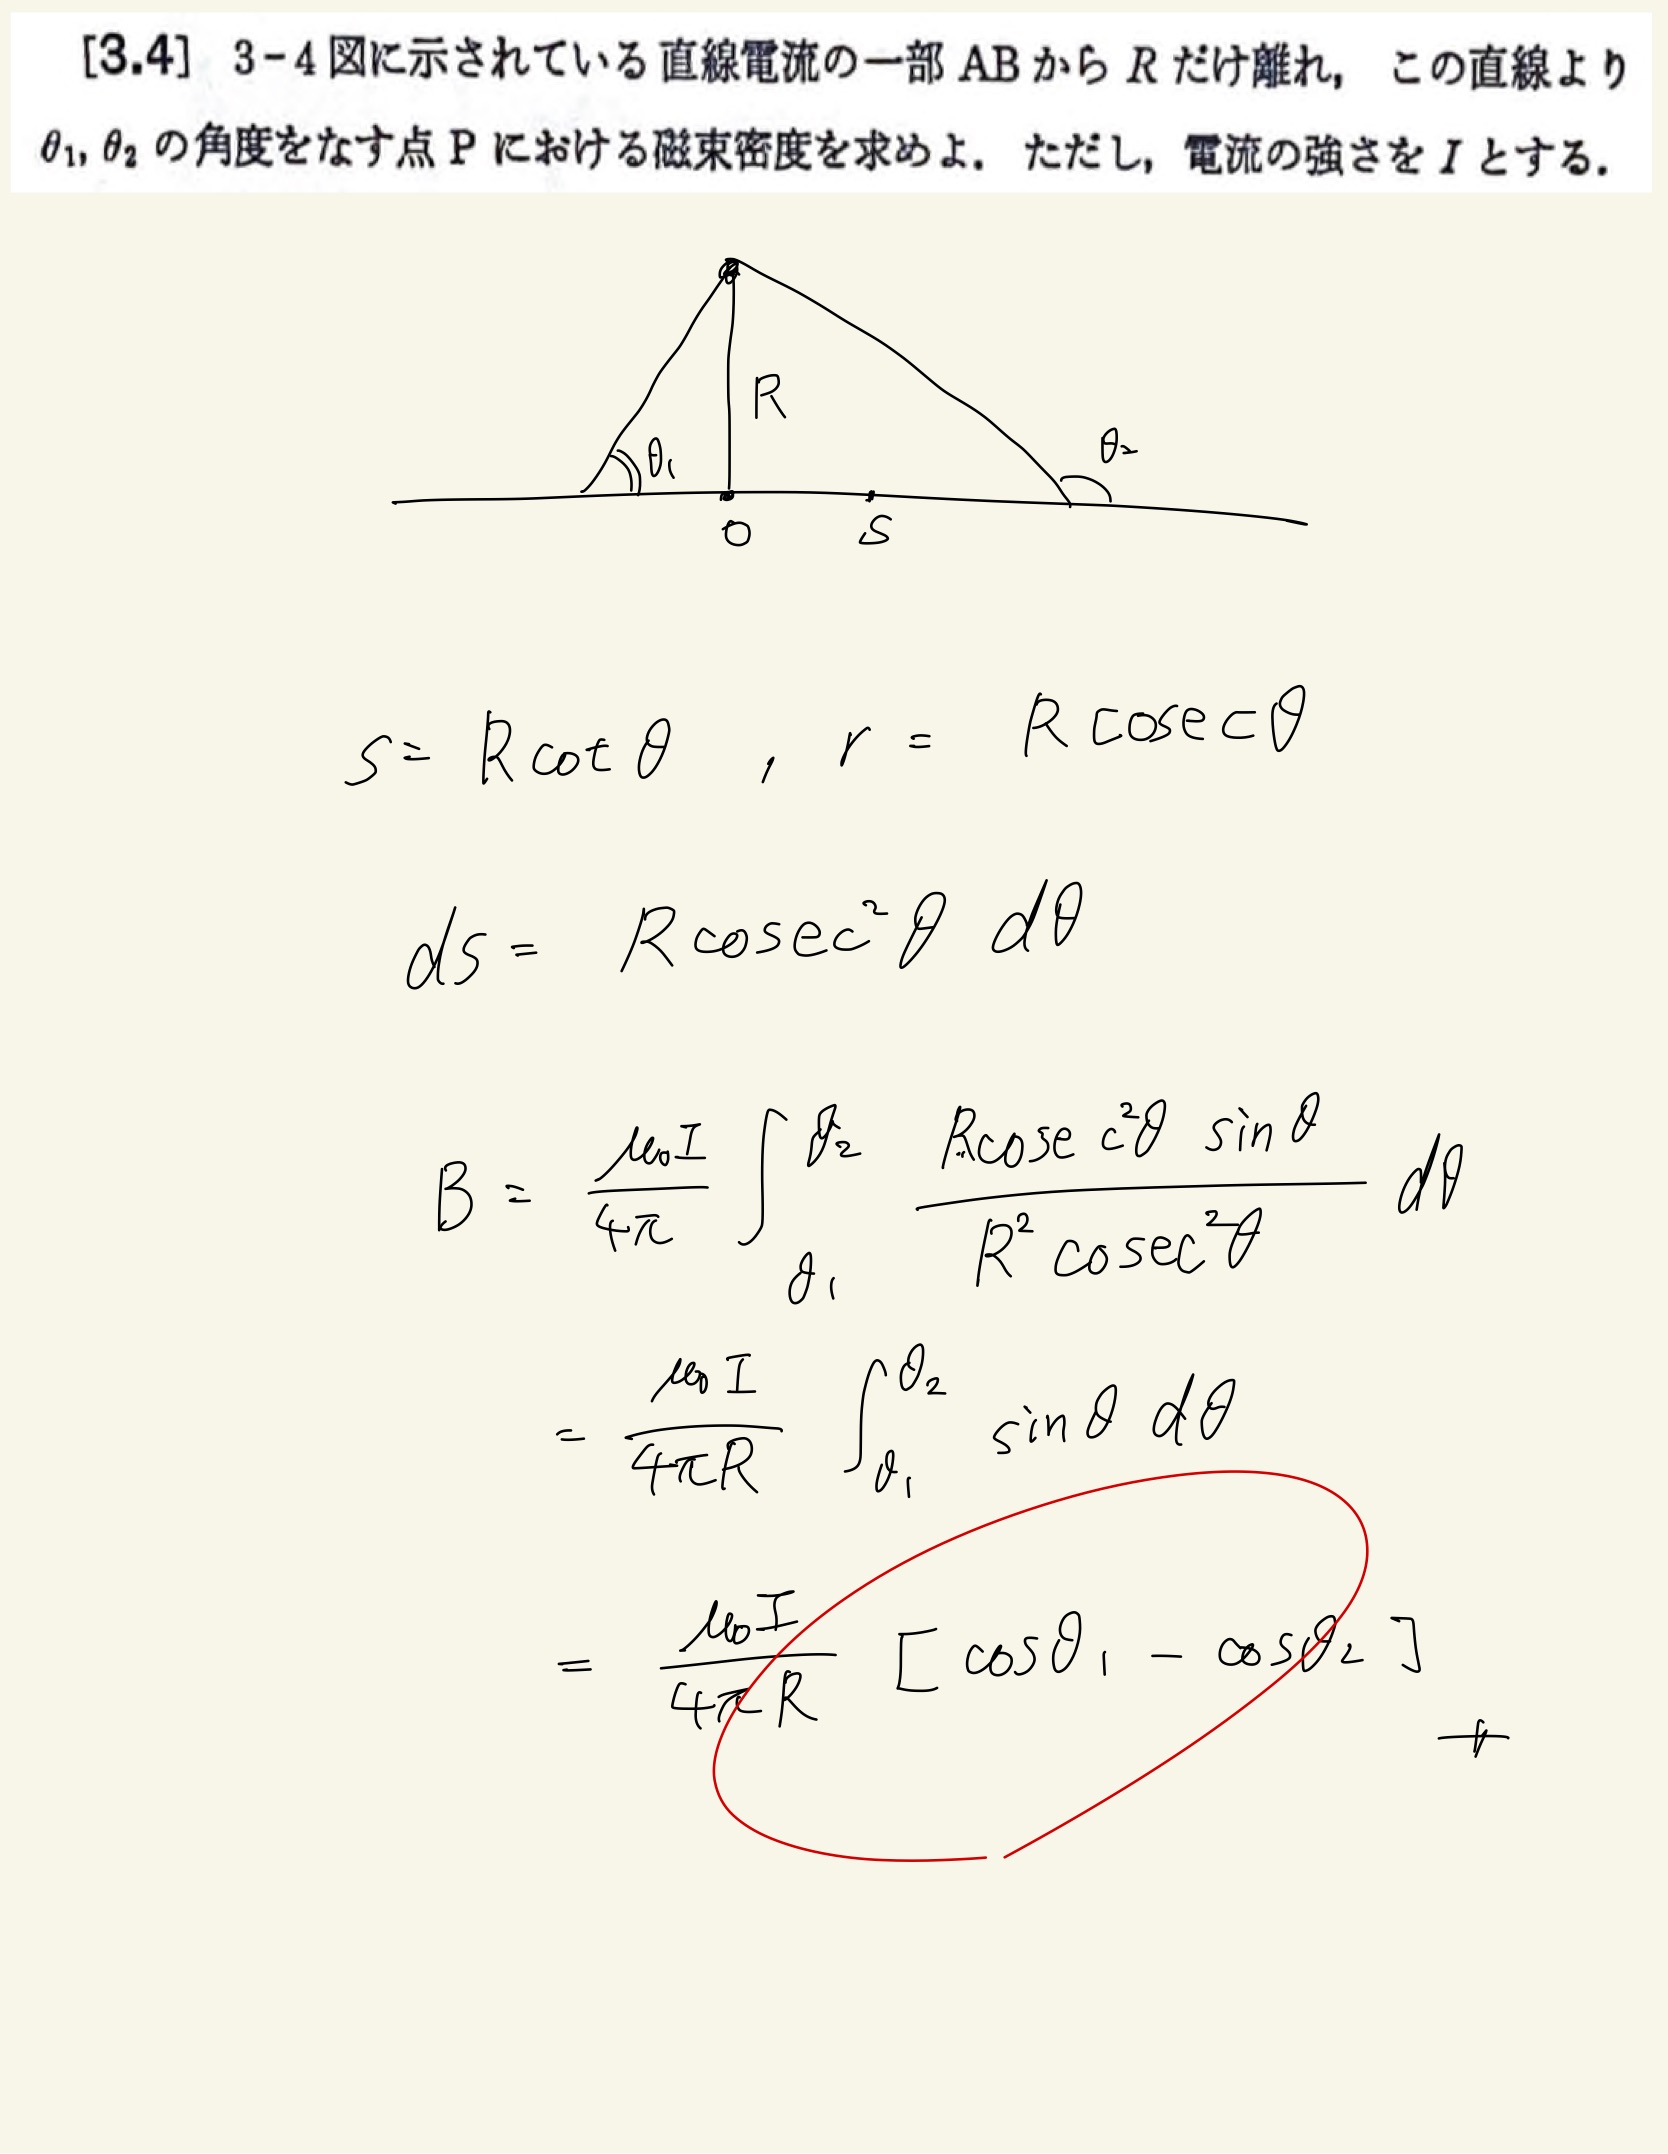 [3.4] 3-4図に示されている直線電流の一部 AB から R だけ離れ, この直線より
θ1, θ2 の角度をなす点 P における磁束密度を求めよ. ただし, 電流の強さを I とする.
R
θ1
θ2
O
S
S = R cot θ , r = R cosec θ
ds = R cosec²θ dθ
B = μ0I/4π ∫θ1^θ2 R cosec²θ sin θ / R² cosec²θ dθ
= μ0I/4πR ∫θ1^θ2 sin θ dθ
= μ0I/4πR [cos θ1 − cos θ2]